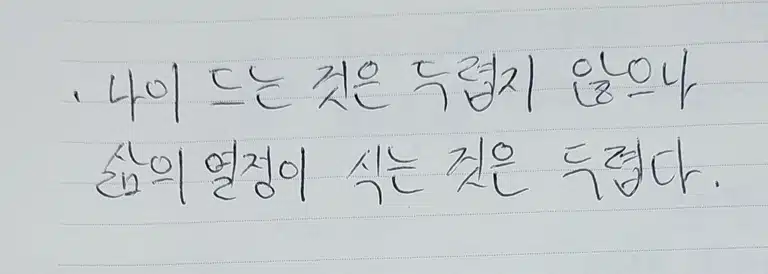 · 나이 드는 것은 두렵지 않으나
삶의 열정이 식는 것은 두렵다.